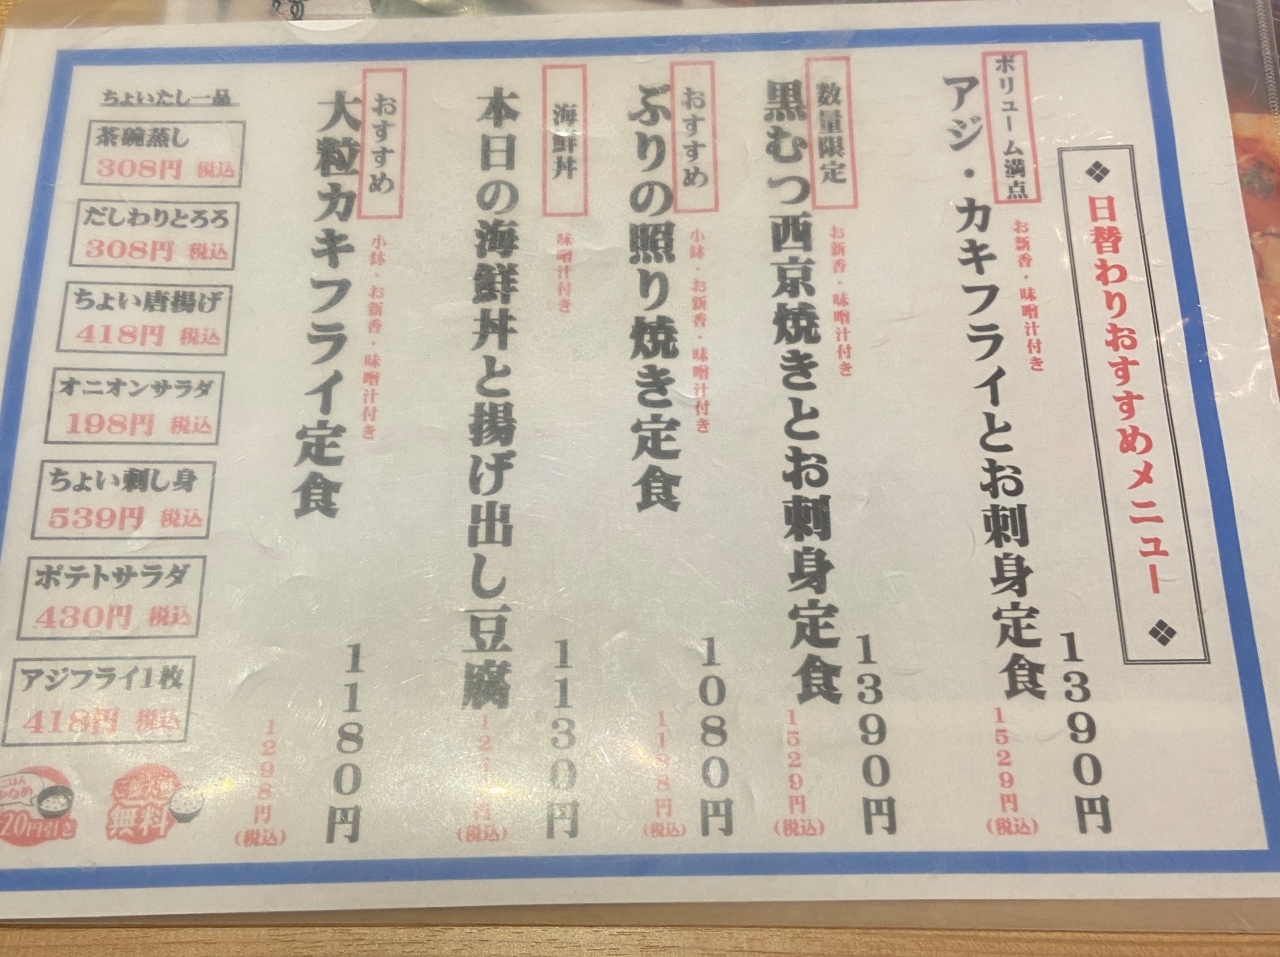 ❖ 日替わりおすすめメニュー ❖
ボリューム満点
お新香・味噌汁付き
アジ・カキフライとお刺身定食
1390円
1529円(税込)
数量限定
お新香・味噌汁付き
黒むつ西京焼きとお刺身定食
1390円
1529円(税込)
おすすめ
小鉢・お新香・味噌汁付き
ぶりの照り焼き定食
1080円
1188円(税込)
海鮮丼
味噌汁付き
本日の海鮮丼と揚げ出し豆腐
1130円
(税込)
おすすめ
小鉢・お新香・味噌汁付き
大粒カキフライ定食
1180円
1298円(税込)
ちょいたし一品
茶碗蒸し
308円 税込
だしわりとろろ
308円 税込
ちょい唐揚げ
418円 税込
オニオンサラダ
198円 税込
ちょい刺し身
539円 税込
ポテトサラダ
430円 税込
アジフライ1枚
418円 税込
ごはん
20円引き
無料